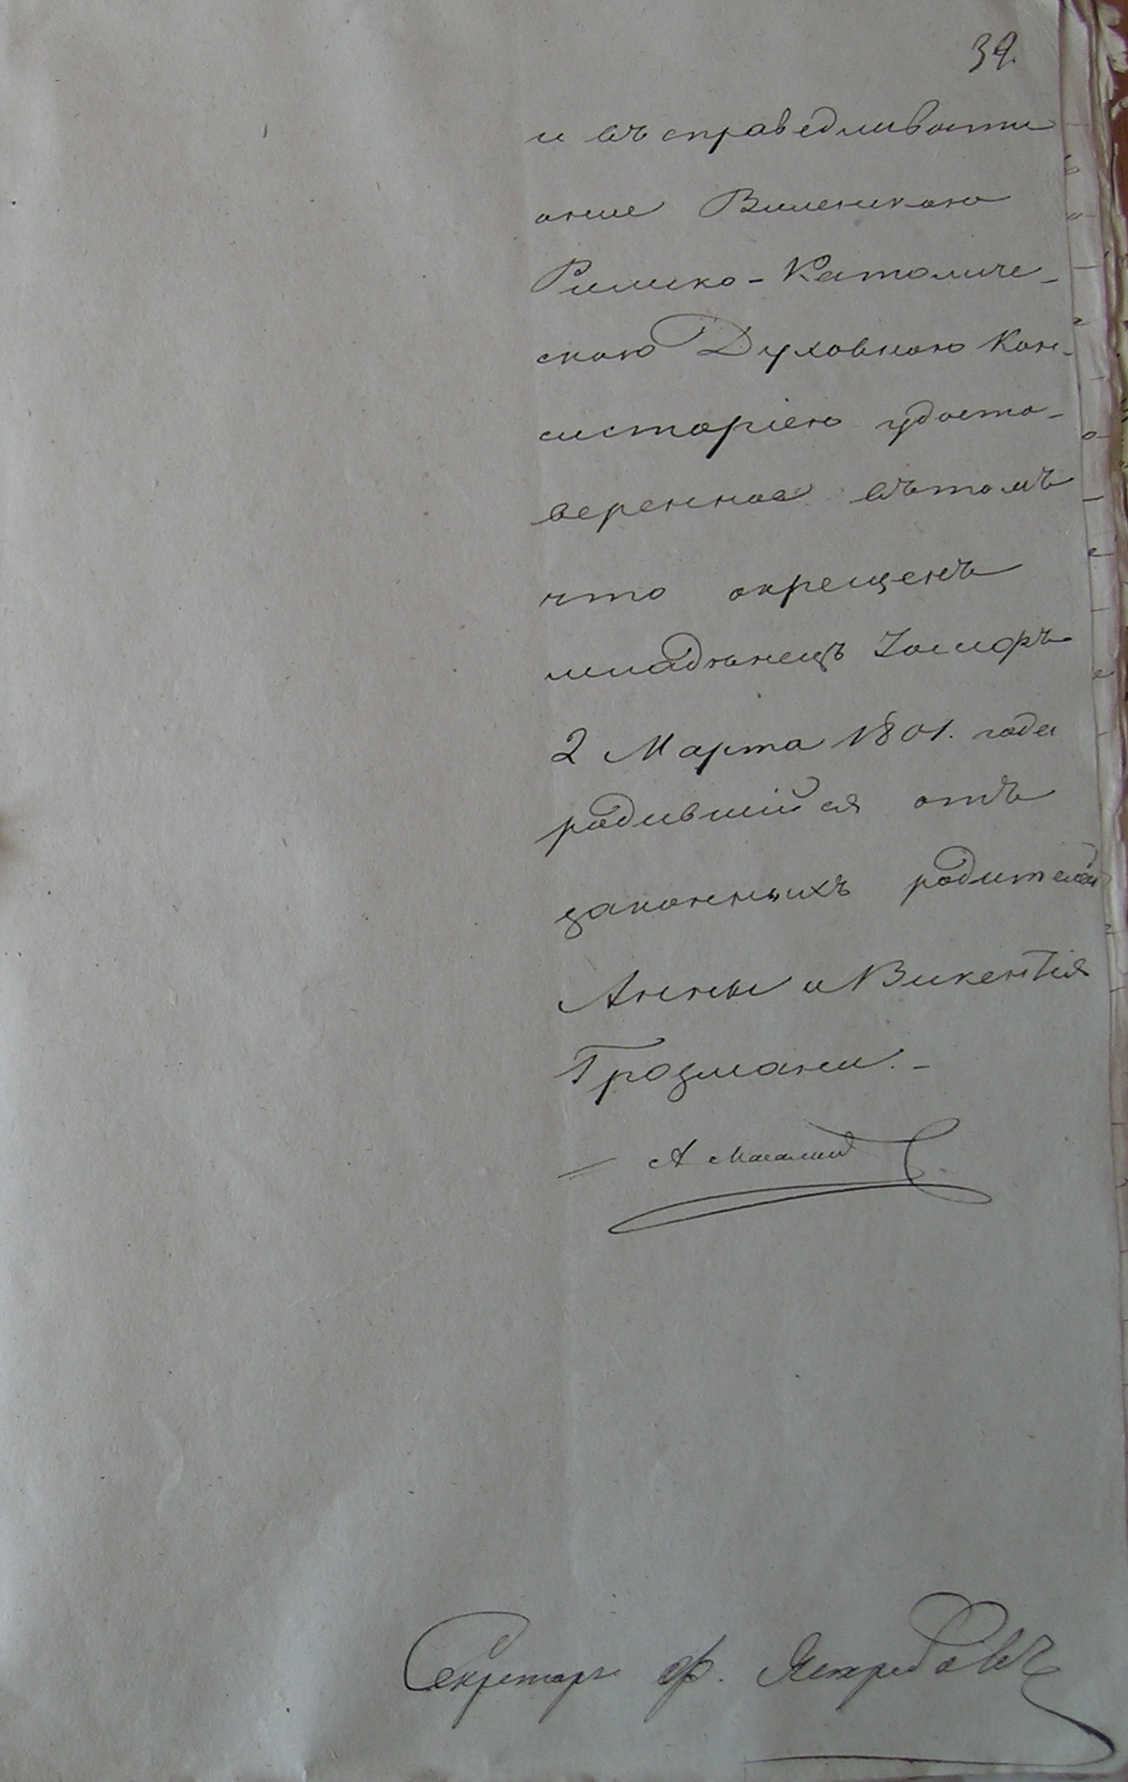 39.
и въ справедливости
оные Виленскою
Римско-Католиче-
скою Духовною Кон-
систоріею удосто-
веренное въ томъ
что окрещенъ
младенецъ Іосифъ
2 Марта 1801. года
родившійся отъ
законныхъ родителей
Анны и Викентія
Грозмани. -
А
Секретарь Ф. Ястребовъ